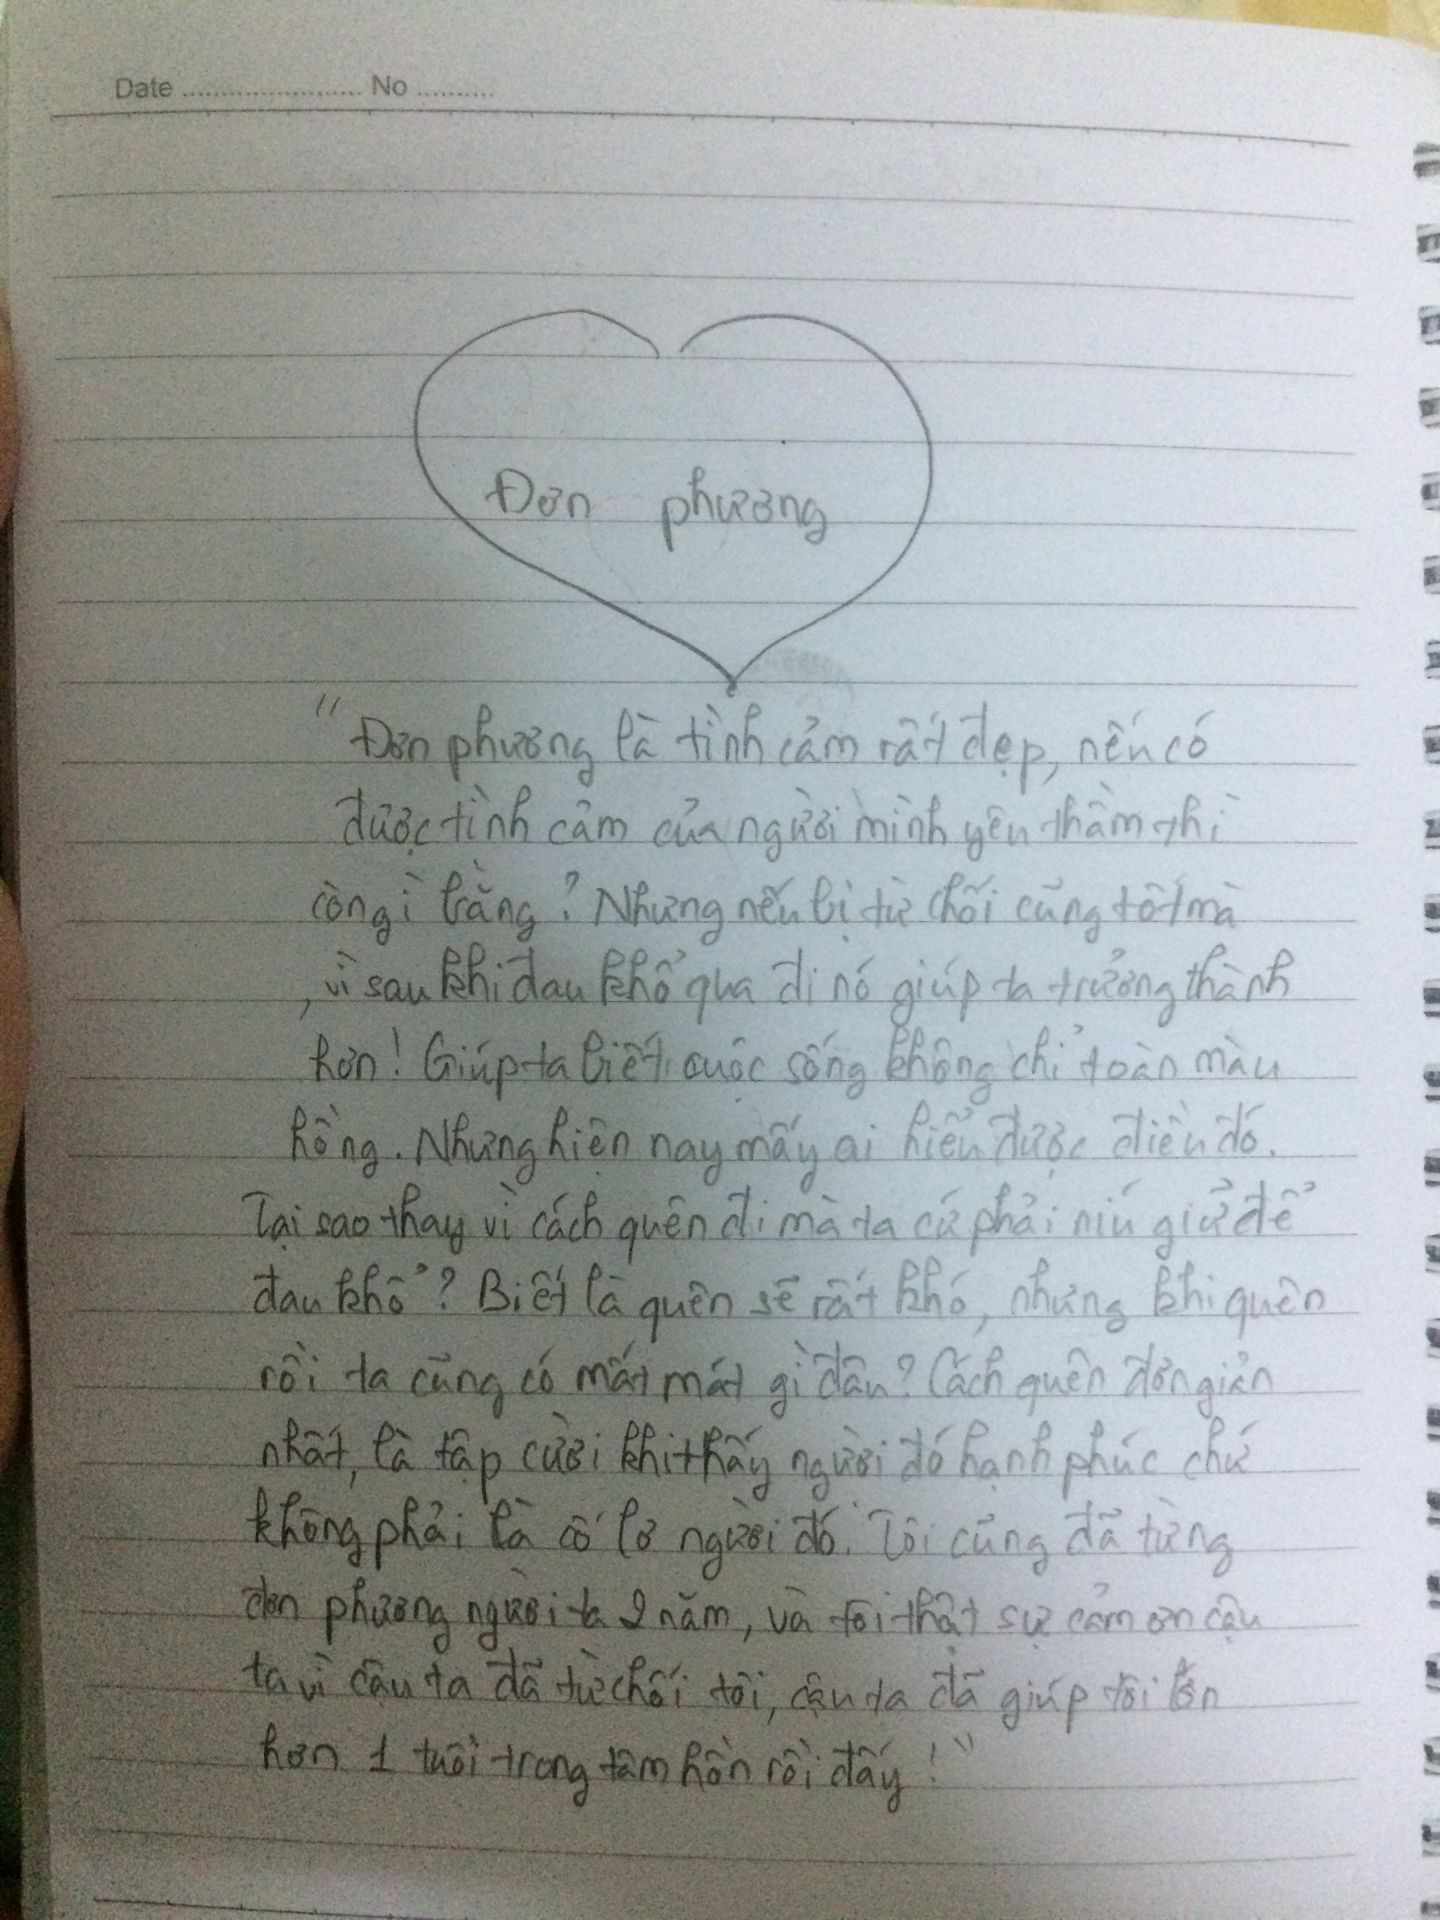 Date ........................ No ..........
Đơn phương
"Đơn phương là tình cảm rất đẹp, nếu có
được tình cảm của người mình yêu thầm thì
còn gì bằng? Nhưng nếu bị từ chối cũng tốt mà
, vì sau khi đau khổ qua đi nó giúp ta trưởng thành
hơn! Giúp ta biết cuộc sống không chỉ toàn màu
hồng. Nhưng hiện nay mấy ai hiểu được điều đó.
Tại sao thay vì cách quên đi mà ta cứ phải níu giữ để
đau khổ? Biết là quên sẽ rất khó, nhưng khi quên
rồi ta cũng có mất mát gì đâu? Cách quên đơn giản
nhất, là tập cười khi thấy người đó hạnh phúc chứ
không phải là cố lơ người đó. Tôi cũng đã từng
đơn phương người ta 2 năm, và tôi thật sự cảm ơn cậu
ta vì cậu ta đã từ chối tôi, cậu ta đã giúp tôi lớn
hơn 1 tuổi trong tâm hồn rồi đấy!"